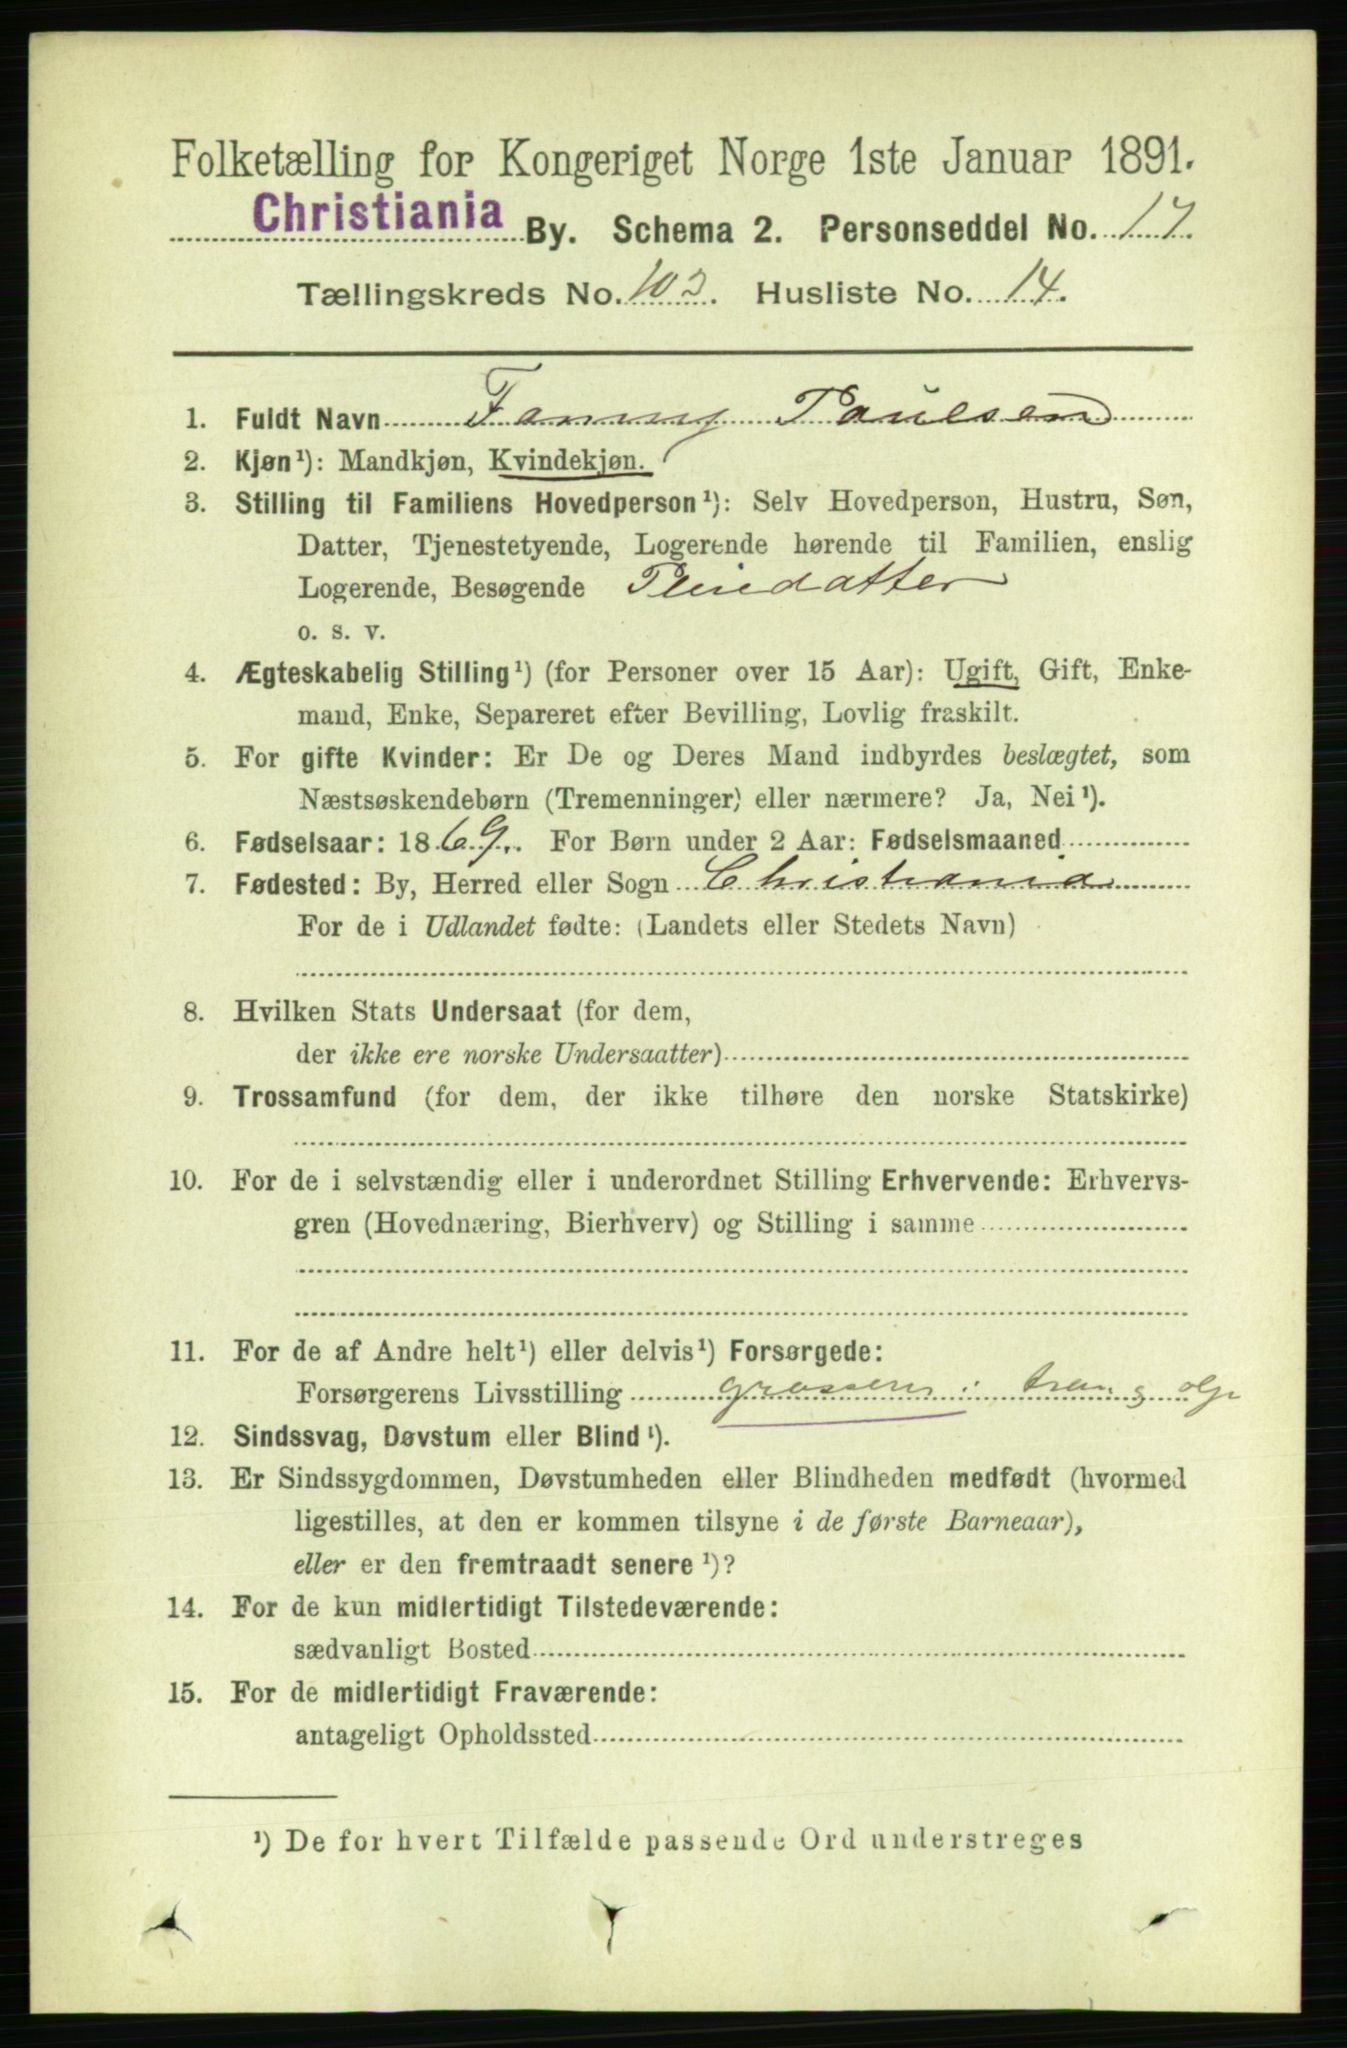 Folketælling for Kongeriget Norge 1ste Januar 1891.
Christiania By. Schema 2. Personseddel No. 17.
Tællingskreds No. 103. Husliste No. 14.
1. Fuldt Navn Fanny Paulsen
2. Kjøn¹): Mandkjøn, Kvindekjøn.
3. Stilling til Familiens Hovedperson¹): Selv Hovedperson, Hustru, Søn,
Datter, Tjenestetyende, Logerende hørende til Familien, enslig
Logerende, Besøgende Pleiedatter
o. s. v.
4. Ægteskabelig Stilling¹) (for Personer over 15 Aar): Ugift, Gift, Enke-
mand, Enke, Separeret efter Bevilling, Lovlig fraskilt.
5. For gifte Kvinder: Er De og Deres Mand indbyrdes beslægtet, som
Næstsøskendebørn (Tremenninger) eller nærmere? Ja, Nei¹).
6. Fødselsaar: 1869. For Børn under 2 Aar: Fødselsmaaned
7. Fødested: By, Herred eller Sogn Christiania
For de i Udlandet fødte: (Landets eller Stedets Navn)
8. Hvilken Stats Undersaat (for dem,
der ikke ere norske Undersaatter)
9. Trossamfund (for dem, der ikke tilhøre den norske Statskirke)
10. For de i selvstændig eller i underordnet Stilling Erhvervende: Erhvervs-
gren (Hovednæring, Bierhverv) og Stilling i samme
11. For de af Andre helt¹) eller delvis¹) Forsørgede:
Forsørgerens Livsstilling grosserer i tran og olje
12. Sindssvag, Døvstum eller Blind¹).
13. Er Sindssygdommen, Døvstumheden eller Blindheden medfødt (hvormed
ligestilles, at den er kommen tilsyne i de første Barneaar),
eller er den fremtraadt senere¹)?
14. For de kun midlertidigt Tilstedeværende:
sædvanligt Bosted
15. For de midlertidigt Fraværende:
antageligt Opholdssted
¹) De for hvert Tilfælde passende Ord understreges